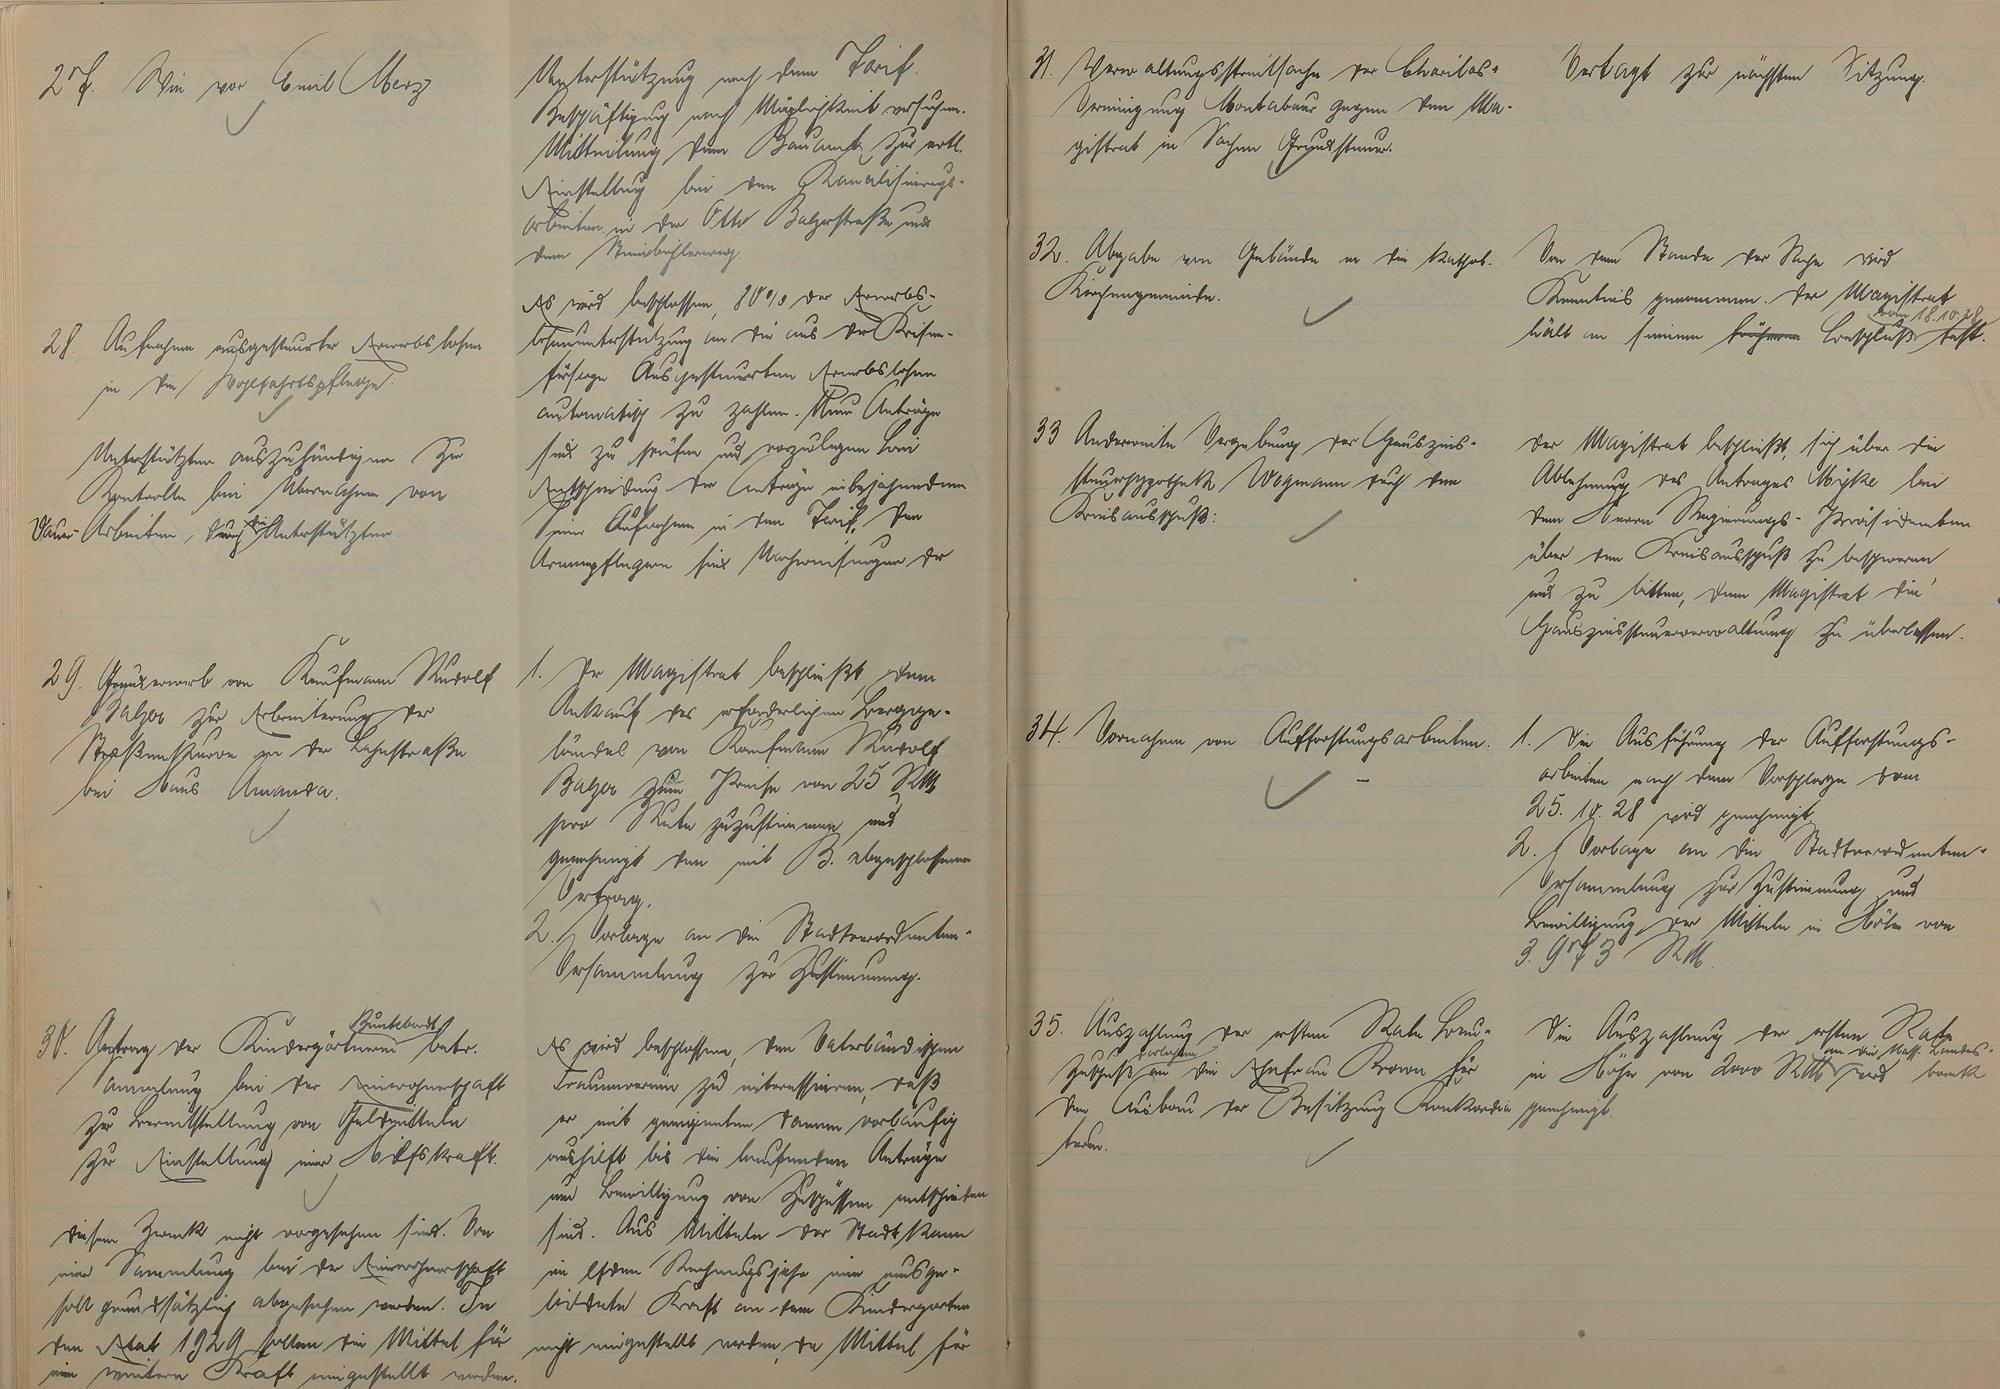 27. Wie vor Emil Merz
Unterstützung nach dem Tarif.
Beschäftigung nach Möglichkeit versuchen.
Mitteilung dem Bauamt zur evtl.
Einstellung bei den Kanalisierungs-
arbeiten in der Otto Balzerstraße und
dem
28. Aufnahme ausgesteuerter Erwerbslosen
in die Wohlfahrtspflege.
Es wird beschlossen, 80% der Erwerbs-
losenunterstützung an die aus der Krisen-
fürsorge Ausgesteuerten Erwerbslosen
automatisch zu zahlen. Neue Anträge
sind zu prüfen und vorzulegen bei
Entscheidung der Anträge
einer Aufnahme in den Tarif. Den
Armenpflegern sind Nachweisungen der
Unterstützten auszuhändigen zur
Kontrolle bei Übernahme von
Dauer-Arbeiten, durch die Unterstützten
29. Grunderwerb von Kaufmann Rudolf
Balzer zur Erbreiterung der
Straßenkurve in der Lahnstraße
bei Haus Amanda.
1. Der Magistrat beschließt, dem
Ankauf des erforderlichen Berggge-
ländes von Kaufmann Rudolf
Balzer zum Preise von 25 RM
pro Rute zuzustimmen und
genehmigt den mit B. abgeschlossenen
Vertrag.
2. Vorlage an die Stadtverordneten-
Versammlung zur Zustimmung.
30. Antrag der Kindergärtnerin Buntebardt betr.
Sammlung bei der Einwohnerschaft
zur Bereitstellung von Geldmitteln
zur Einstellung einer Hilfskraft.
Es wird beschlossen, den Vaterländischen
Frauenverein zu interessieren, daß
er mit geeigneten Damen vorläufig
aushilft bis die laufenden Anträge
um Bewilligung von Zuschüssen entschieden
sind. Aus Mitteln der Stadt kann
im lfden Rechnungsjahr eine ausge-
bildete Kraft an dem Kindergarten
nicht eingestellt werden, da Mittel für
diesen Zweck nicht vorgesehen sind. Von
einer Sammlung bei der Einwohnerschaft
soll grundsätzlich abgesehen werden. In
den Etat 1929 sollen die Mittel für
eine weitere Kraft eingestellt werden.
31. Verwaltungsstreitsache der Charitas-
Vereinigung Montabaur gegen den Ma-
gistrat in Sachen Grundsteuer.
Vertagt zur nächsten Sitzung.
32. Abgabe von Gelände an die kathol.
Kirchengemeinde.
Von dem Stande der Sache wird
Kenntnis genommen. Der Magistrat
hält an seinem früheren Beschluß vom 18.10.28 fest.
33 Anderweite Vergebung der Hauszins-
steuerhypothek Wegmann durch den
Kreisausschuß:
Der Magistrat beschließt, sich über die
Ablehnung des Antrages bei
dem Herrn Regierungs-Präsidenten
über den Kreisausschuß zu beschweren
und zu bitten, dem Magistrat die
Hauszinssteuerverwaltung zu überlassen.
34. Vornahme von Aufforstungsarbeiten.
1. Die Ausführung der Aufforstungs-
arbeiten nach dem Vorschlage vom
25. 10. 28 wird genehmigt.
2. Vorlage an die Stadtverordneten-
Versammlung zur Zustimmung und
Bewilligung der Mittel in Höhe von
3.973 RM.
35. Auszahlung der ersten Rate Bau-
zuschuß an die Ehefrau Krown für
den Ausbau der Besitzung Konkordia
Die Auszahlung der ersten Rate
in Höhe von 2000 RM an die Nass. Landes-
bank wird
genehmigt.